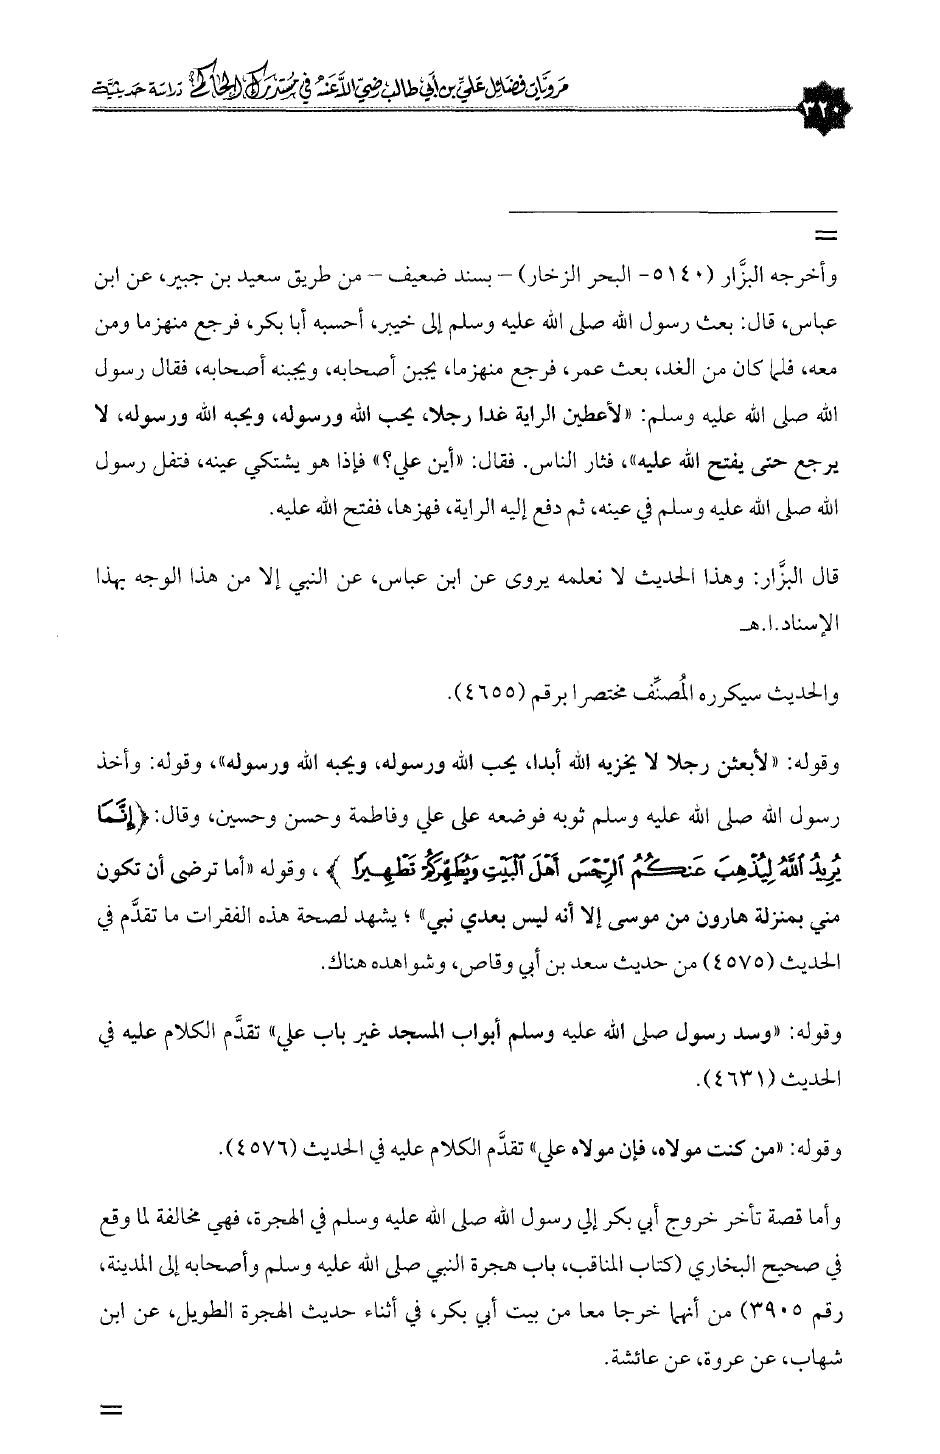 مرويات فضائل علي بن أبي طالب رضي الله عنه في مستدرك الحاكم دراسة حديثية
٣٢٠
=
وأخرجه البزَّار (٥١٤٠- البحر الزخار) – بسند ضعيف – من طريق سعيد بن جبير، عن ابن
عباس، قال: بعث رسول الله صلى الله عليه وسلم إلى خيبر، أحسبه أبا بكر، فرجع منهزما ومن
معه، فلما كان من الغد، بعث عمر، فرجع منهزما، يجبن أصحابه، ويجبنه أصحابه، فقال رسول
الله صلى الله عليه وسلم: «لأعطين الراية غدا رجلا، يحب الله ورسوله، ويحبه الله ورسوله، لا
يرجع حتى يفتح الله عليه»، فثار الناس. فقال: «أين علي؟» فإذا هو يشتكي عينه، فتفل رسول
الله صلى الله عليه وسلم في عينه، ثم دفع إليه الراية، فهزها، ففتح الله عليه.
قال البزَّار: وهذا الحديث لا نعلمه يروى عن ابن عباس، عن النبي إلا من هذا الوجه بهذا
الإسناد.ا.هـ
والحديث سيكرره المُصنِّف مختصرا برقم (٤٦٥٥).
وقوله: «لأبعثن رجلا لا يخزيه الله أبدا، يحب الله ورسوله، ويحبه الله ورسوله»، وقوله: وأخذ
رسول الله صلى الله عليه وسلم ثوبه فوضعه على علي وفاطمة وحسن وحسين، وقال: ﴿إِنَّمَا
يُرِيدُ ٱللَّهُ لِيُذْهِبَ عَنكُمُ ٱلرِّجْسَ أَهْلَ ٱلْبَيْتِ وَيُطَهِّرَكُمْ تَطْهِيرًا﴾، وقوله «أما ترضى أن تكون
مني بمنزلة هارون من موسى إلا أنه ليس بعدي نبي» ؛ يشهد لصحة هذه الفقرات ما تقدَّم في
الحديث (٤٥٧٥) من حديث سعد بن أبي وقاص، وشواهده هناك.
وقوله: «وسد رسول صلى الله عليه وسلم أبواب المسجد غير باب علي» تقدَّم الكلام عليه في
الحديث (٤٦٣١).
وقوله: «من كنت مولاه، فإن مولاه علي» تقدَّم الكلام عليه في الحديث (٤٥٧٦).
وأما قصة تأخر خروج أبي بكر إلى رسول الله صلى الله عليه وسلم في الهجرة، فهي مخالفة لما وقع
في صحيح البخاري (كتاب المناقب، باب هجرة النبي صلى الله عليه وسلم وأصحابه إلى المدينة،
رقم ٣٩٠٥) من أنهما خرجا معا من بيت أبي بكر، في أثناء حديث الهجرة الطويل، عن ابن
شهاب، عن عروة، عن عائشة.
=